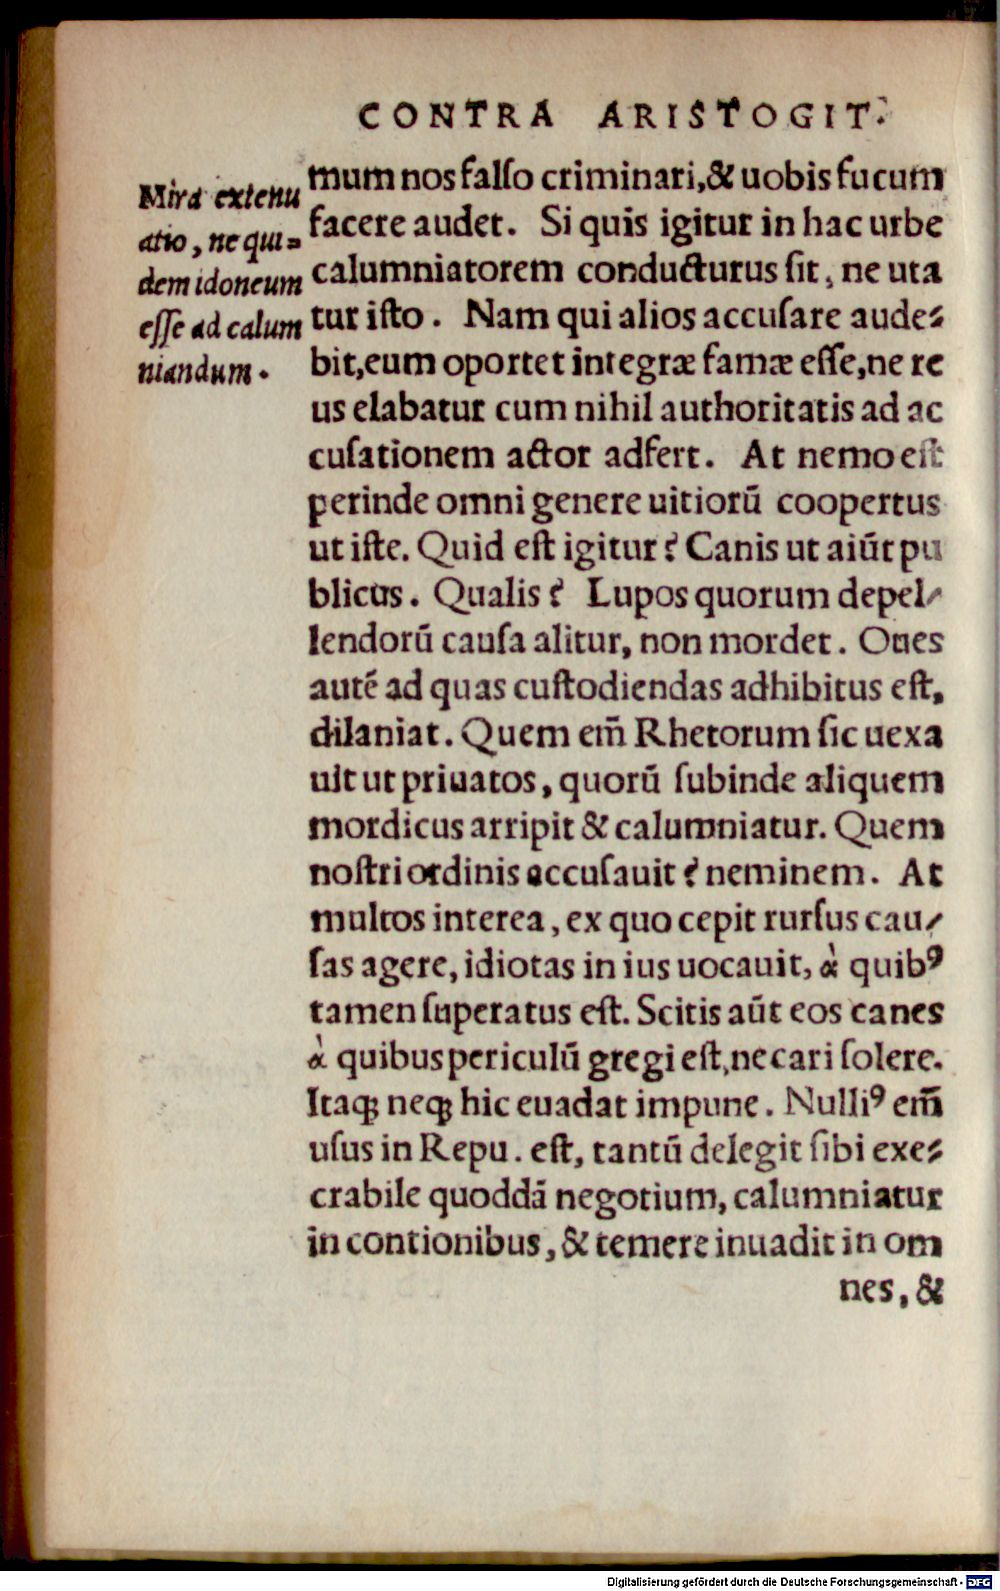 CONTRA ARISTOGIT.
Mira extenu
atio, ne qui=
dem idoneum
eſſe ad calum
niandum.
mum nos falſo criminari, & uobis fucum
facere audet. Si quis igitur in hac urbe
calumniatorem conducturus ſit, ne uta
tur iſto. Nam qui alios accuſare aude=
bit, eum oportet integræ famæ eſſe, ne re
us elabatur cum nihil authoritatis ad ac
cuſationem actor adfert. At nemo eſt
perinde omni genere uitiorũ coopertus
ut iſte. Quid eſt igitur? Canis ut aiũt pu
blicus. Qualis? Lupos quorum depel-
lendorũ cauſa alitur, non mordet. Oues
autẽ ad quas cuſtodiendas adhibitus eſt,
dilaniat. Quem em̃ Rhetorum ſic uexa
uit ut priuatos, quorũ ſubinde aliquem
mordicus arripit & calumniatur. Quem
noſtri ordinis accuſauit? neminem. At
multos interea, ex quo cepit rurſus cau-
ſas agere, idiotas in ius uocauit, à quibꝰ
tamen ſuperatus eſt. Scitis aũt eos canes
à quibus periculũ gregi eſt, necari ſolere.
Itaqꝫ neqꝫ hic euadat impune. Nulliꝰ em̃
uſus in Repu. eſt, tantũ delegit ſibi exe=
crabile quoddã negotium, calumniatur
in contionibus, & temere inuadit in om
nes, &
Digitalisierung gefördert durch die Deutsche Forschungsgemeinschaft - DFG